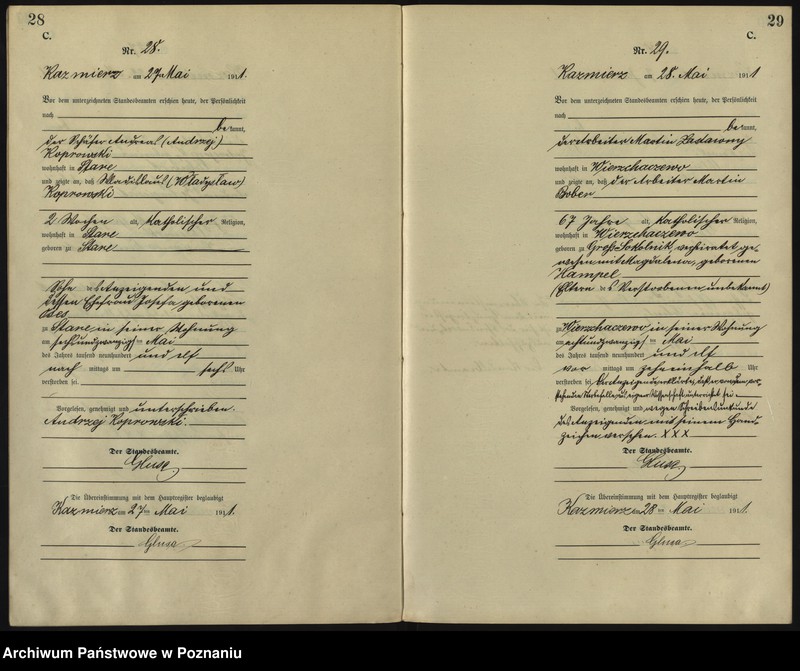 28
C.
Nr. 28.
Kazmierz am 27 Mai 1911.
Vor dem unterzeichneten Standesbeamten erschien heute, der Persönlichkeit
nach
bekannt,
der Schäfer Andreas (Andrzej)
Koprowski
wohnhaft in Stare
und zeigte an, daß Wladislaus (Władysław)
Koprowski
2 Wochen alt, katholischer Religion,
wohnhaft in Stare
geboren zu Stare
Sohn des Anzeigenden und
dessen Ehefrau Josefa geborenen
zu Stare in seiner Wohnung
am sechsundzwanzigsten Mai
des Jahres tausend neunhundert und elf
nach mittags um sechs Uhr
verstorben sei.
Vorgelesen, genehmigt und unterschrieben.
Andrzej Koprowski.
Der Standesbeamte.
Glusa
Die Übereinstimmung mit dem Hauptregister beglaubigt
Kazmierz am 27ten Mai 1911.
Der Standesbeamte.
Glusa
29
C.
Nr. 29.
Kazmierz am 28. Mai 1911
Vor dem unterzeichneten Standesbeamten erschien heute, der Persönlichkeit
nach
bekannt,
der Arbeiter Martin
wohnhaft in Wierzchaczewo
und zeigte an, daß der Arbeiter Martin
Bober
67 Jahre alt, katholischer Religion,
wohnhaft in Wierzchaczewo
geboren zu Groß Sokolnik, verheiratet ge-
wesen mit Magdalena, geborenen
Hampel
(Eltern des Verstorbenen unbekannt)
zu Wierzchaczewo, in seiner Wohnung
am achtundzwanzigsten Mai
des Jahres tausend neunhundert und elf
vor mittags um zehneinhalb Uhr
verstorben sei. Der Anzeigende erklärte, daß er von dem vor-
stehenden Sterbefalle aus eigener Wissenschaft unterrichtet sei.
Vorgelesen, genehmigt und wegen Schreibensunkunde
des Anzeigenden mit seinem Hand-
zeichen versehen. XXX
Der Standesbeamte.
Glusa
Die Übereinstimmung mit dem Hauptregister beglaubigt
Kazmierz am 28ten Mai 1911.
Der Standesbeamte.
Glusa
Archiwum Państwowe w Poznaniu
szukajwarchiwach.gov.pl